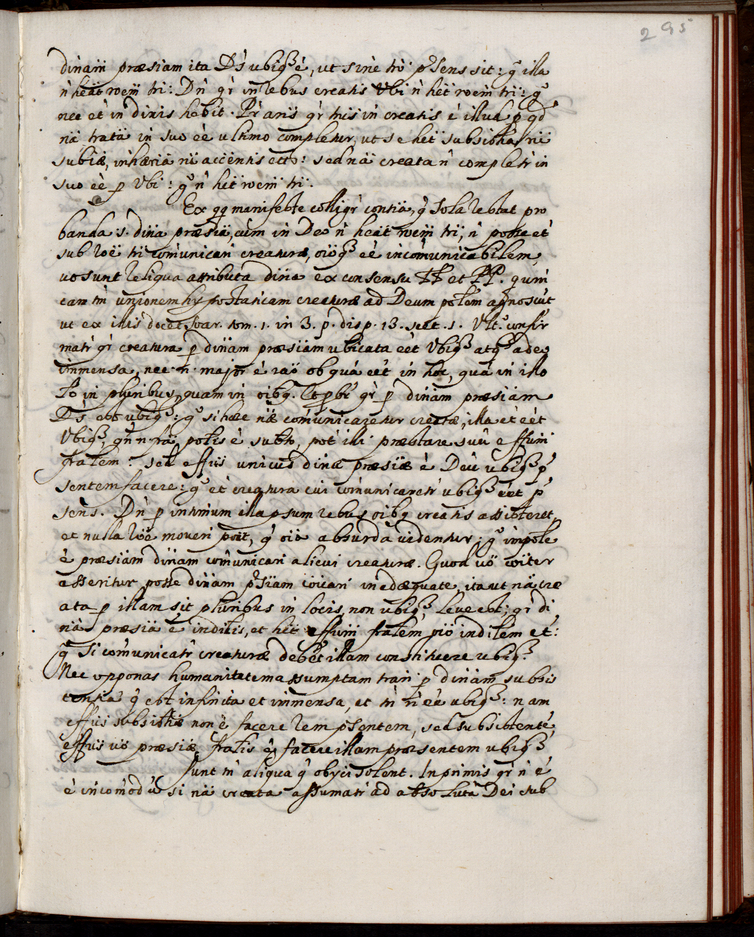 295
dinam præsiam ita Ds ubiq3 é, ut sine trō p̄sens sit: q̄ illa
ñ heat roem tri: Dñ qr in rebus creatis Ubi ñ hēt roem tri: q̊
nec et in divis hēbit. Pr ans qr trus in creatis é illud p qd
nā trata in suo éé ultimo completur, ut se hēt subsistia, ni
subiæ, inhæria ni accentis etc: sed nā creata ñ completr in
suo éé p Ubi: q̊ ñ hēt roem tri.
Ex qq manifeste colligr contia, q̄ sola restat pro
banda s. dina præsia, cum in Deo ñ heat roem tri, ñ posse et
sub roe tri comunicari creaturæ, oioq3 éé incomunicabilem,
ut sunt reliqua attributa dina ex consensu TT et PP. qui
tam tn unionem hypostaticam creaturæ ad Deum polem agnoscut
ut ex illis docet Suar. tom. 1. in 3. p. disp. 13. sect. 1. Ult. confir
matr qr creatura p dinam præsiam ubicata eét Ubiq3 atq3 adeo
immensa, nec ñ major é rao ob qua eét in hoc, quā in illo
lo in pluribus, quam in oibq. Et pbr qr p dinam præsiam
Ds est ubiq3: q̊ si hæc næ comunicaretur creatæ, illa et eét
Ubiq3,
fralem: sed effus unicus dinæ præsiæ é Deū ubiq3 p̄
sentem facere: q̊ et creatura cui comunicaretr ubiq3 eet p̄
sens. Dñ p intimum illapsum rebus oibq creatis assisteret,
et nulla roe moveri poit, q̄ oia absurda videntur; q̊ impole
é præsiam dinam comunicari alicui creaturæ. Quod uo coiter
asseritur posse dinam p̄siam coicari inadæquate, ita ut nā cre
ata p illam sit pluribus in locis, non ubiq3 leve est: qr di
nā præsia é indilis, et hēt effum fralem oio indilem et:
q̊ si comunicatr creaturæ debet illam constituere ubiq3.
Nec opponas humanitatem assumptam trari p dinam subsis
tentiā q̄ est infinita et immensa, et tn ñ éé ubiq3: nam
effus subsistiæ non é facere rem p̄sentem, sed subsistente
effus uo præsiæ fralis é, facere illam præsentem ubiq3.
Sunt tn aliqua q̄ obyci solent. Inprimis qr ñ é
é incomodū si nā creata assumatr ad absolutā Dei sub